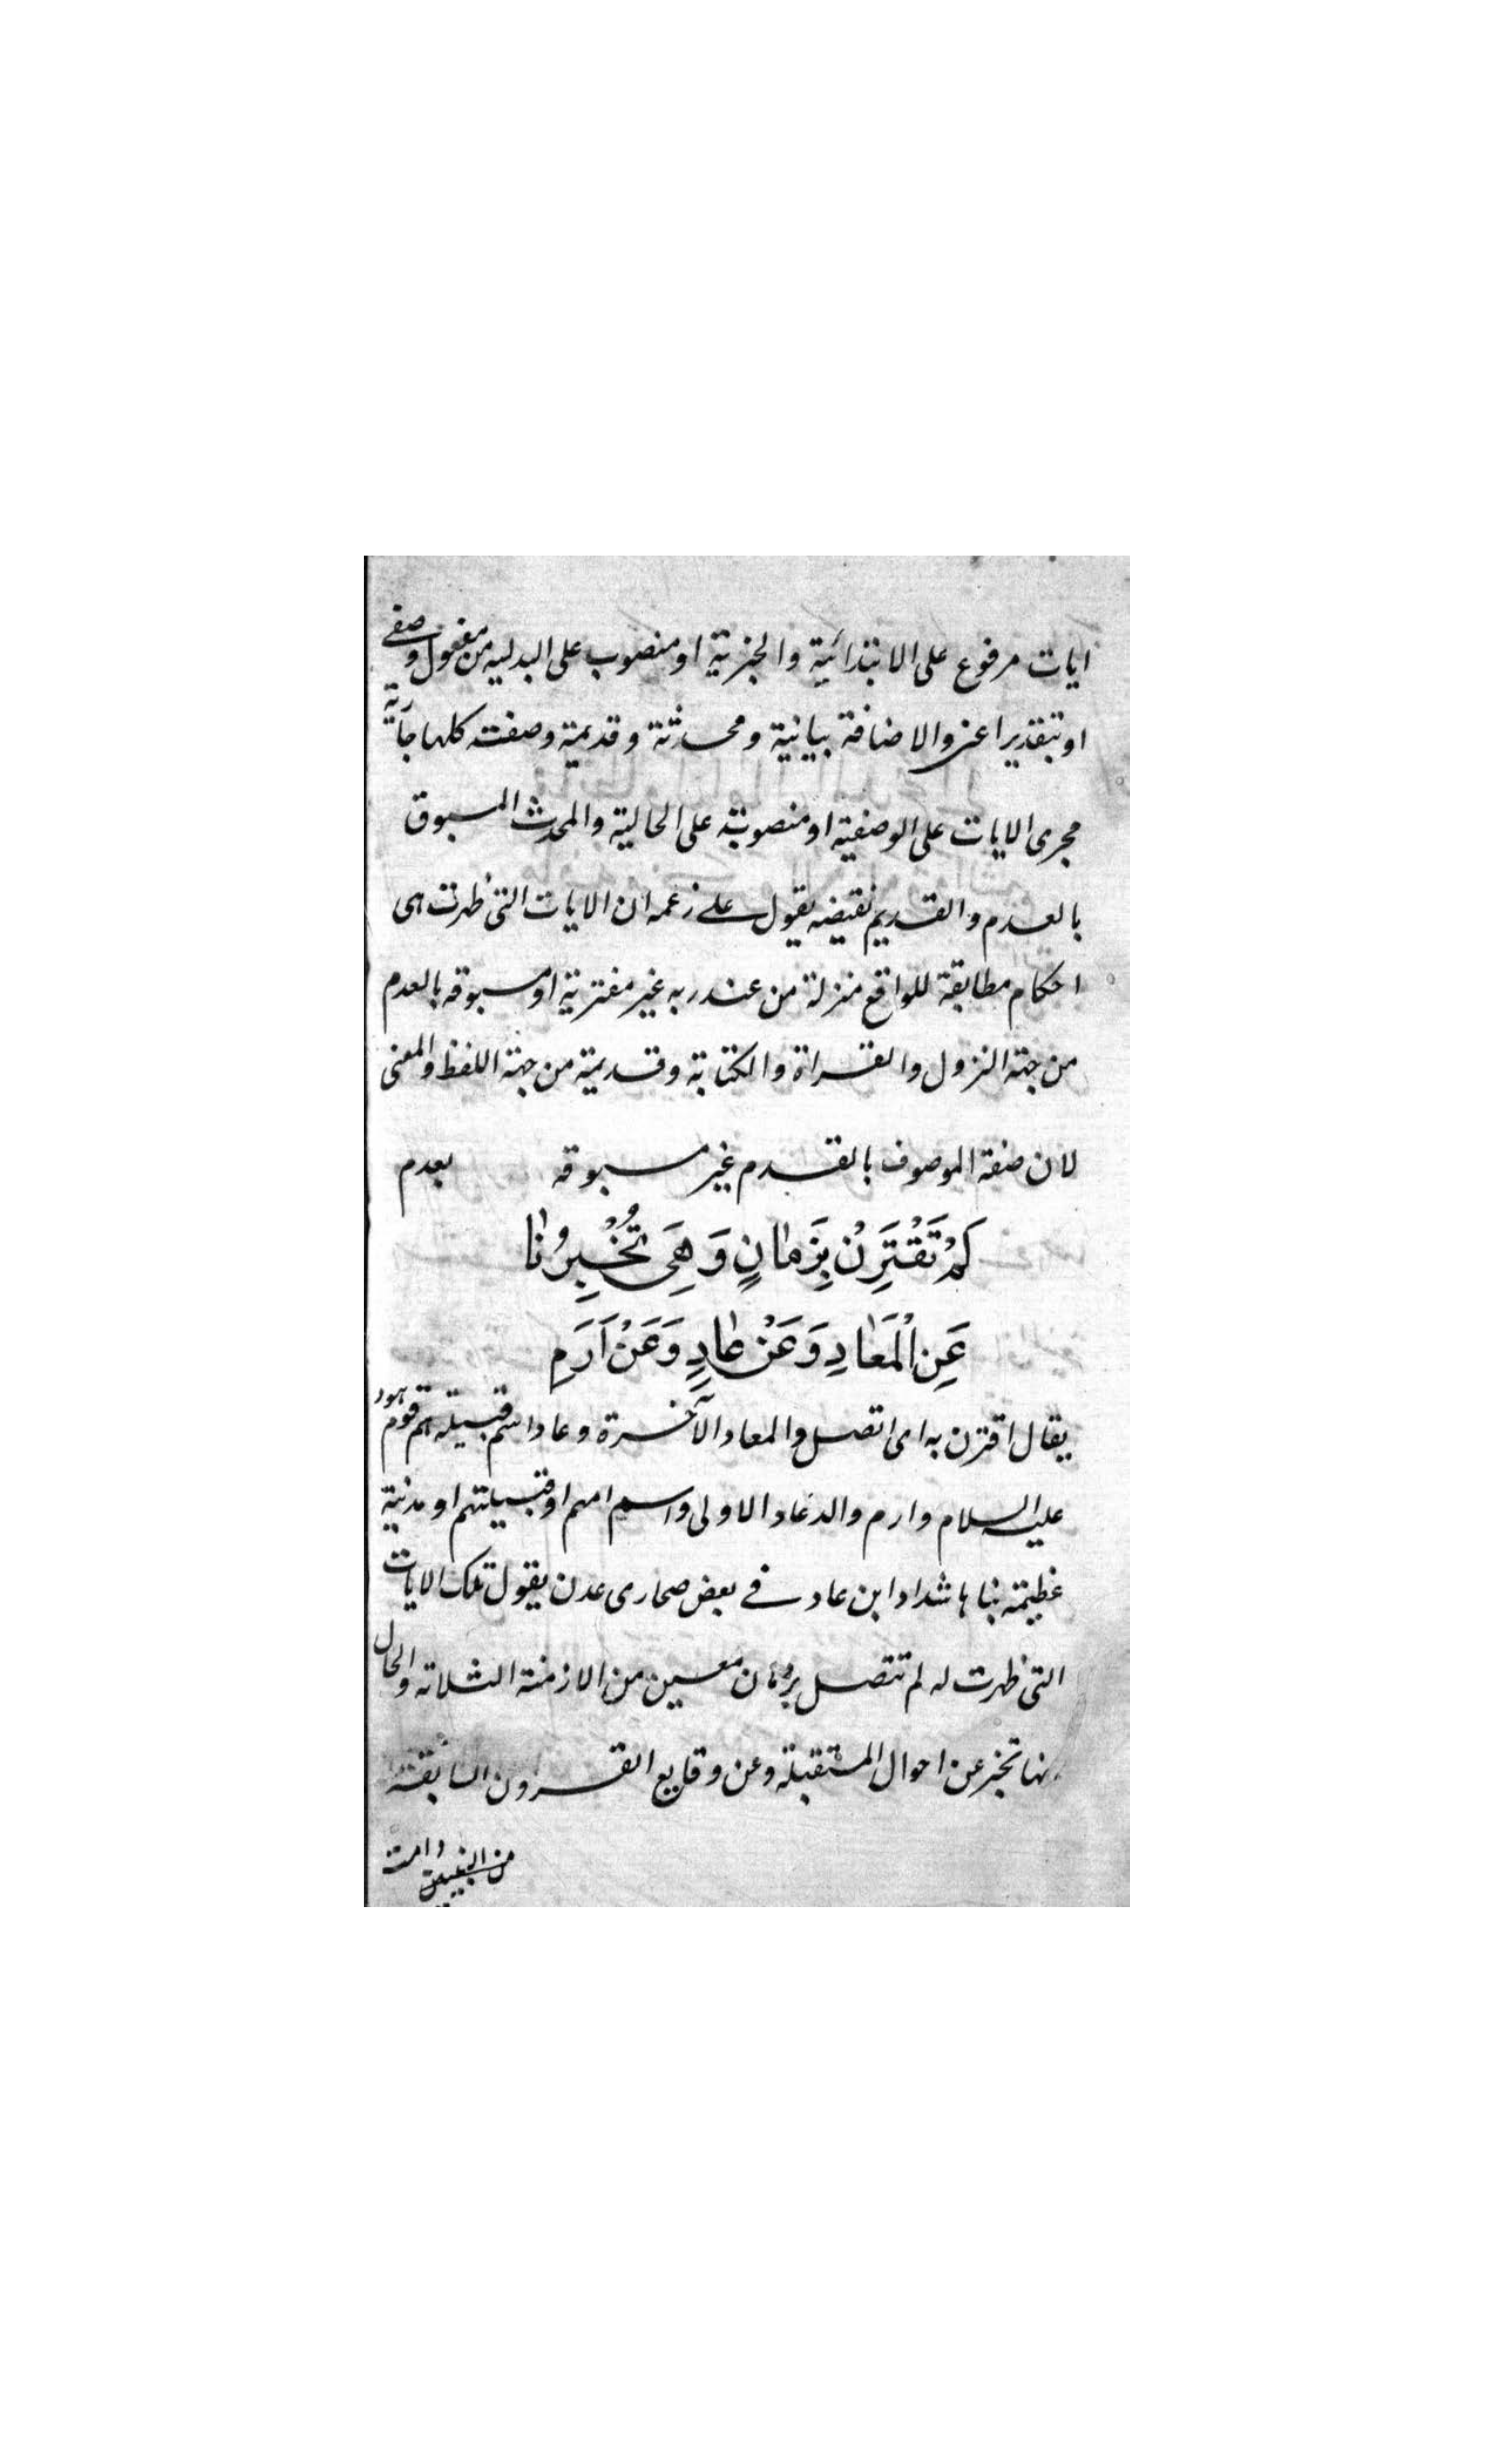 ايات مرفوع على الابتدائية والخبرية او منصوب على البدلية من مفعول وصفى
او بتقدير اعنى والاضافة بيانية ومحدثة وقديمة وصفت كلها جارية
مجرى الايات على الوصفية او منصوبة على الحالية والمحدث المسبوق
بالعدم والقديم نقيضه يقول على زعمه ان الايات التى ظهرت هى
احكام مطابقة للواقع منزلة من عند ربه غير مفترية او مسبوقه بالعدم
من جهة النزول والقراة والكتابة وقديمة من جهة اللفظ والمعنى
لان صفة الموصوف بالقدم غير مسبوقه بعدم
لَمْ تَقْتَرِنْ بِزَمَانٍ وَهِىَ تُخْبِرُونَا
عَنِ الْمَعَادِ وَعَنْ عَادٍ وَعَنْ اَرَمِ
يقال اقترن به اى اتصل والمعاد الآخرة وعاد اسم قبيلة هم قوم هود
عليه السلام وارم والد عاد الاولى واسم امهم او قبيلتهم او مدنية
عظيمة بناها شداد ابن عاد فے بعض صحارى عدن يقول تلك الايات
التى ظهرت له لم تتصل بزمان معين من الازمنة الثلاثه والحال
انها تخبر عن احوال المستقبلة وعن وقايع القرون السابقة